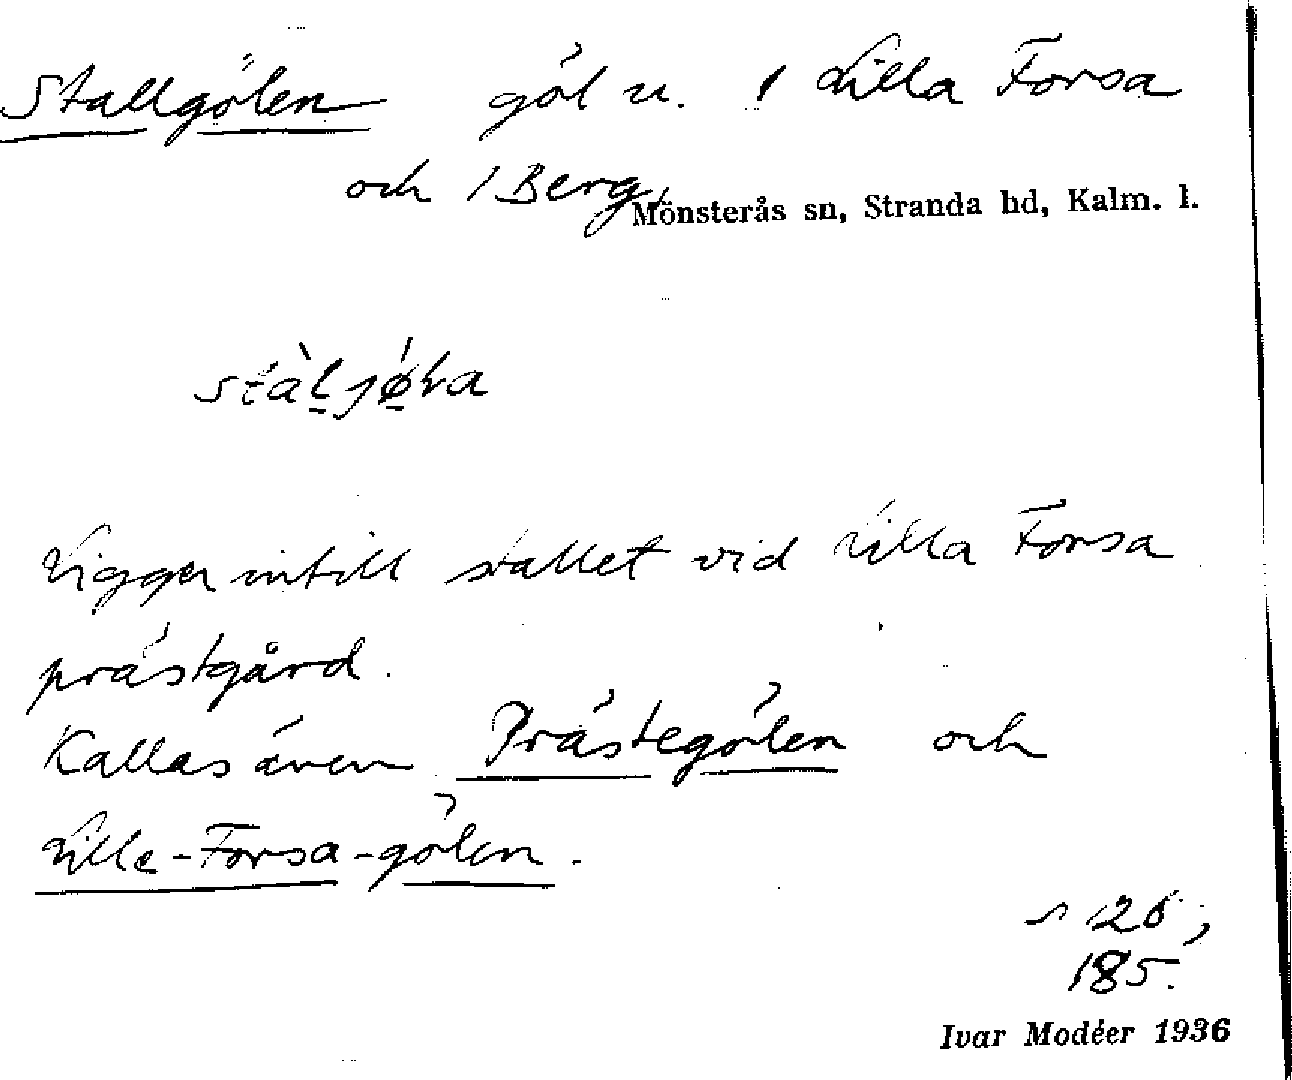 Stallgölen göl u. 1 Lilla Forsa
och 1 Berg,
Mönsterås sn, Stranda hd, Kalm. l.
Ligger intill stallet vid Lilla Forsa
prästgård.
Kallas även Prästegölen och
Lille-Forsa-gölen.
s 26,
185.
Ivar Modéer 1936